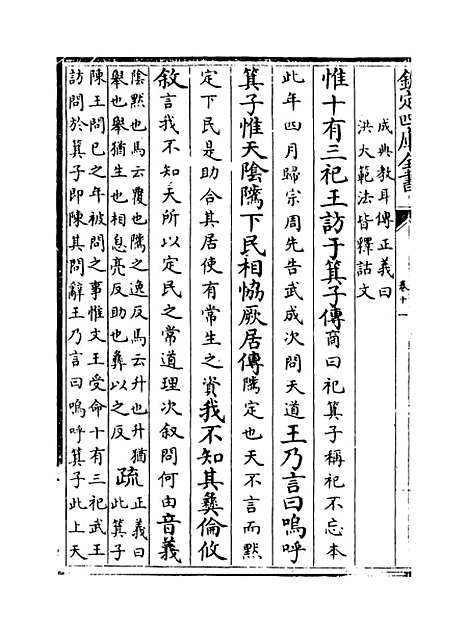 欽定四庫全書
卷十一
成典教耳傳正義曰
洪大範法皆釋詁文
惟十有三祀王訪于箕子傳商曰祀箕子稱祀不忘本
此年四月歸宗周先告武成次問天道王乃言曰嗚呼
箕子惟天陰隲下民相恊厥居傳隲定也天不言而黙
定下民是助合其居使有常生之資我不知其彝倫攸
敘言我不知天所以定民之常道理次叙問何由音義
陰黙也馬云覆也隲之逸反馬云升也升猶
舉也舉猶生也相息亮反助也彝以之反
疏
正義曰
此箕子
陳王問已之年被問之事惟文王受命十有三祀武王
訪問於箕子即陳其問辭王乃言曰嗚呼箕子此上天